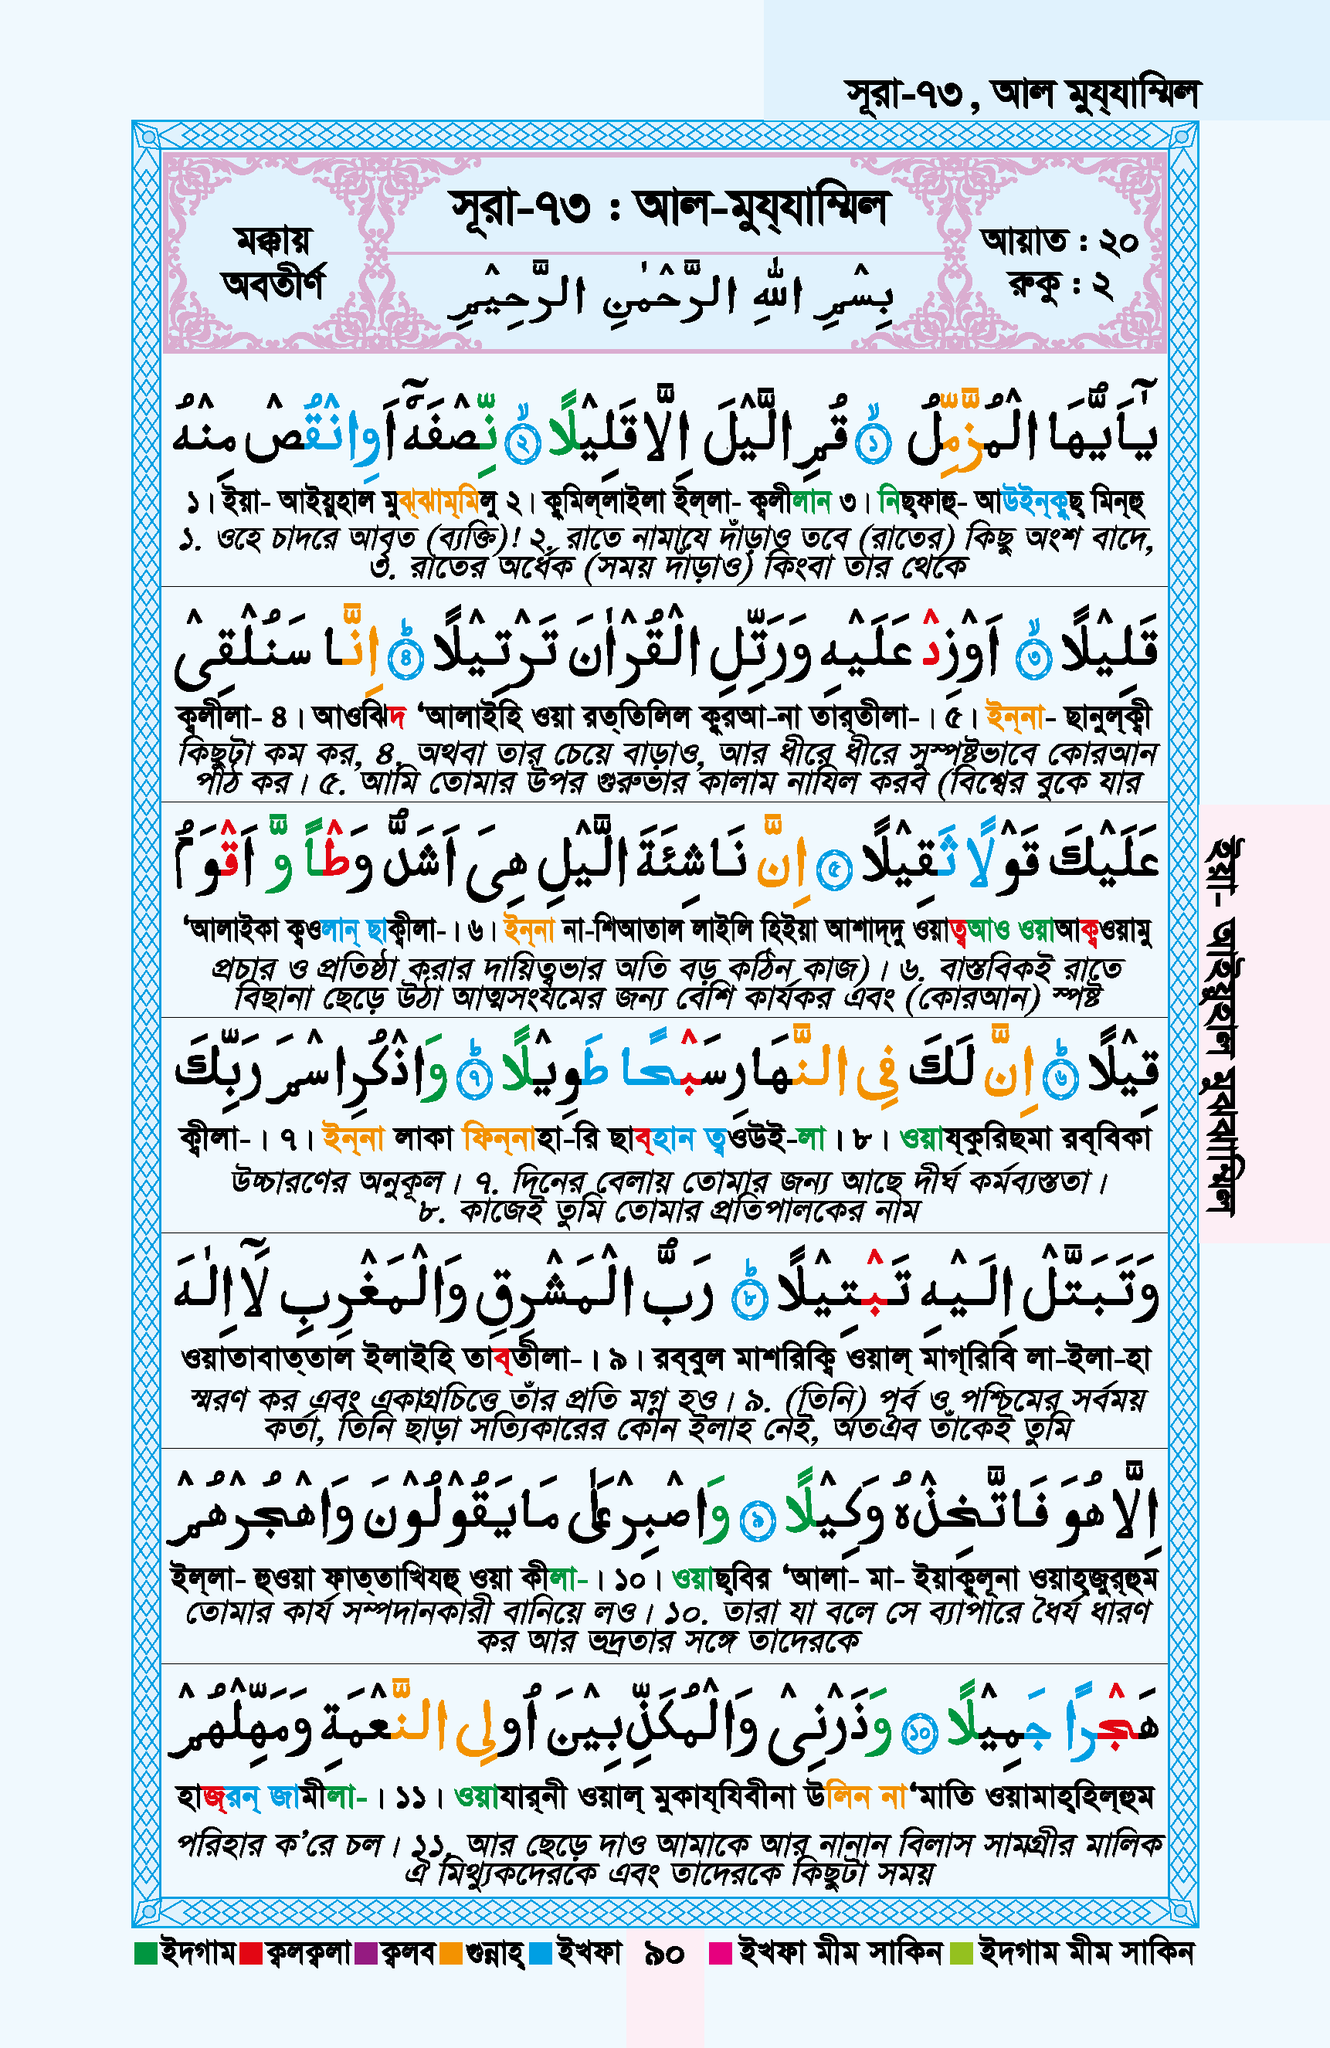 সূরা-৭৩, আল মুয্‌যাম্মিল
সূরা-৭৩ : আল-মুয্‌যাম্মিল
মক্কায়
অবতীর্ণ
আয়াত : ২০
রুকু : ২
بِسْمِ اللّٰهِ الرَّحْمٰنِ الرَّحِيْمِ
يٰۤاَيُّهَا الْمُزَّمِّلُ ۙ﴿۱﴾ قُمِ الَّيْلَ اِلَّا قَلِيْلًا ۙ﴿۲﴾ نِّصْفَهٗۤ اَوِ انْقُصْ مِنْهُ
১। ইয়া- আইয়ুহাল মুঝ্‌ঝাম্‌মিলু ২। কুমিল্‌লাইলা ইল্‌লা- ক্বলীলান ৩। নিছ্‌ফাহু- আউইন্‌কুছ্‌ মিন্‌হু
১. ওহে চাদরে আবৃত (ব্যক্তি)! ২. রাতে নামাযে দাঁড়াও তবে (রাতের) কিছু অংশ বাদে,
৩. রাতের অর্ধেক (সময় দাঁড়াও) কিংবা তার থেকে
قَلِيْلًا ۙ﴿۳﴾ اَوْ زِدْ عَلَيْهِ وَرَتِّلِ الْقُرْاٰنَ تَرْتِيْلًا ؕ﴿۴﴾ اِنَّا سَنُلْقِىْ
ক্বলীলা- ৪। আওঝিদ ‘আলাইহি ওয়া রত্‌তিলিল কুরআ-না তার্‌তীলা-। ৫। ইন্‌না- ছানুল্‌ক্বী
কিছুটা কম কর, ৪. অথবা তার চেয়ে বাড়াও, আর ধীরে ধীরে সুস্পষ্টভাবে কোরআন
পাঠ কর। ৫. আমি তোমার উপর গুরুভার কালাম নাযিল করব (বিশ্বের বুকে যার
عَلَيْكَ قَوْلًا ثَقِيْلًا ﴿۵﴾ اِنَّ نَاشِئَةَ الَّيْلِ هِىَ اَشَدُّ وَطْاً وَّ اَقْوَمُ
‘আলাইকা ক্বওলান্‌ ছাক্বীলা-। ৬। ইন্‌না না-শিআতাল লাইলি হিইয়া আশাদ্‌দু ওয়াত্বআও ওয়াআক্বওয়ামু
প্রচার ও প্রতিষ্ঠা করার দায়িত্বভার অতি বড় কঠিন কাজ)। ৬. বাস্তবিকই রাতে
বিছানা ছেড়ে উঠা আত্মসংযমের জন্য বেশি কার্যকর এবং (কোরআন) স্পষ্ট
قِيْلًا ؕ﴿۶﴾ اِنَّ لَكَ فِى النَّهَارِ سَبْحًا طَوِيْلًا ؕ﴿۷﴾ وَاذْكُرِ اسْمَ رَبِّكَ
ক্বীলা-। ৭। ইন্‌না লাকা ফিন্‌নাহা-রি ছাব্‌হান ত্বওউই-লা। ৮। ওয়ায্‌কুরিছমা রব্‌বিকা
উচ্চারণের অনুকূল। ৭. দিনের বেলায় তোমার জন্য আছে দীর্ঘ কর্মব্যস্ততা।
৮. কাজেই তুমি তোমার প্রতিপালকের নাম
وَتَبَتَّلْ اِلَيْهِ تَبْتِيْلًا ؕ﴿۸﴾ رَبُّ الْمَشْرِقِ وَالْمَغْرِبِ لَاۤ اِلٰهَ
ওয়াতাবাত্‌তাল ইলাইহি তাব্‌তীলা-। ৯। রব্‌বুল মাশরিক্বি ওয়াল্‌ মাগ্‌রিবি লা-ইলা-হা
স্মরণ কর এবং একাগ্রচিত্তে তাঁর প্রতি মগ্ন হও। ৯. (তিনি) পূর্ব ও পশ্চিমের সর্বময়
কর্তা, তিনি ছাড়া সত্যিকারের কোন ইলাহ নেই, অতএব তাঁকেই তুমি
اِلَّا هُوَ فَاتَّخِذْهُ وَكِيْلًا ﴿۹﴾ وَاصْبِرْ عَلٰى مَا يَقُوْلُوْنَ وَاهْجُرْهُمْ
ইল্‌লা- হুওয়া ফাত্‌তাখিযহু ওয়া কীলা-। ১০। ওয়াছ্‌বির ‘আলা- মা- ইয়াকুলূনা ওয়াহ্‌জুর্‌হুম
তোমার কার্য সম্পদানকারী বানিয়ে লও। ১০. তারা যা বলে সে ব্যাপারে ধৈর্য ধারণ
কর আর ভদ্রতার সঙ্গে তাদেরকে
هَجْرًا جَمِيْلًا ﴿۱۰﴾ وَذَرْنِىْ وَالْمُكَذِّبِيْنَ اُولِى النَّعْمَةِ وَمَهِّلْهُمْ
হাজ্‌রন্‌ জামীলা-। ১১। ওয়াযার্‌নী ওয়াল্‌ মুকায্‌যিবীনা উলিন না‘মাতি ওয়ামাহ্‌হিল্‌হুম
পরিহার ক’রে চল। ১১. আর ছেড়ে দাও আমাকে আর নানান বিলাস সামগ্রীর মালিক
ঐ মিথ্যুকদেরকে এবং তাদেরকে কিছুটা সময়
ইয়া- আইয়ুহাল মুঝঝাম্মিল
ইদগাম ক্বলক্বলা ক্বলব গুন্নাহ্‌ ইখফা ৯০ ইখফা মীম সাকিন ইদগাম মীম সাকিন